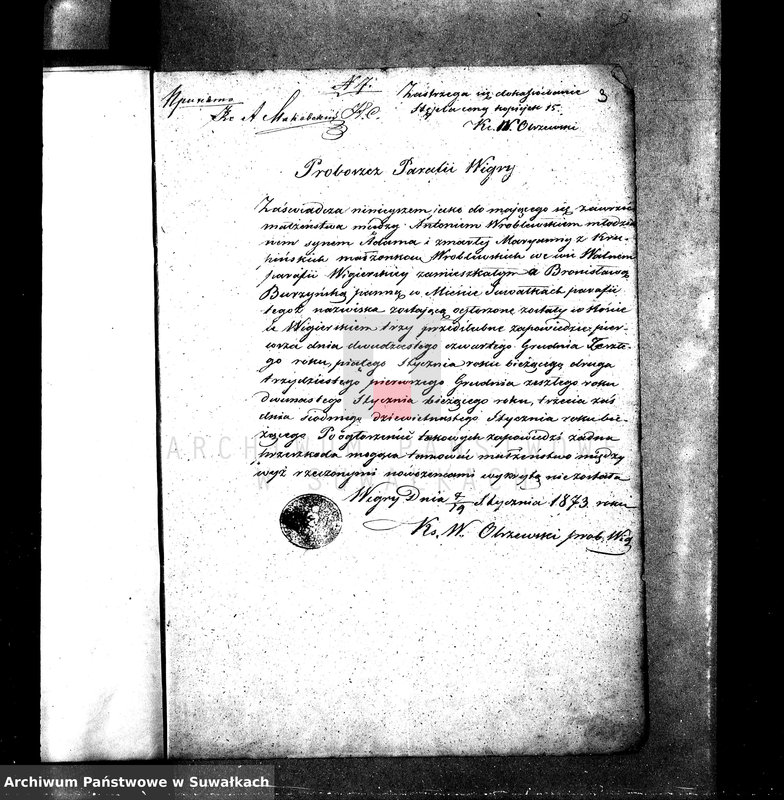 N 7.
Принято
Кс А Маковский К. С.
Zastrzega się dokassowanie
Stępla ceny kopijek 15.
Ks. W. Obrzewski
3
Proboszcz Parafii Wigry
Zaświadcza niniejszem jako do mającego się zawrzeć
małżeństwa między Antoniem Wroblewskim młodzia-
nem synem Adama i zmarłej Maryanny z Kru-
pińskich małżonków Wroblewskich we wsi Walnem
parafii Wigierskiej zamieszkałym a Bronisławą
Burzyńską panną w Mieście Suwałkach parafii
tegoż nazwiska zostającą ogłoszone zostały w Kóście-
le Wigierskiem trzy przedślubne zapowiedzie, pier-
wsza dnia dwudziestego czwartego Grudnia Zeszłe-
go roku, piątego Stycznia roku bieżącego druga
trzydziestego pierwszego Grudnia zeszłego roku
dwunastego Stycznia bieżącego roku, trzecia zaś
dnia siódmego dziewiętnastego Stycznia roku bie-
żącego Po ogłoszeniu takowych zapowiedzi żadna
przeszkoda mogąca tamować małżeństwo między
wyż rzeczonymi nowożeńcami wykrytą nie została
Wigry Dnia 7/19 Stycznia 1873 roku
Ks. W. Obrzewski prob. Wig
ARCHIWUM PAŃSTWOWE
W SUWAŁKACH
Archiwum Państwowe w Suwałkach